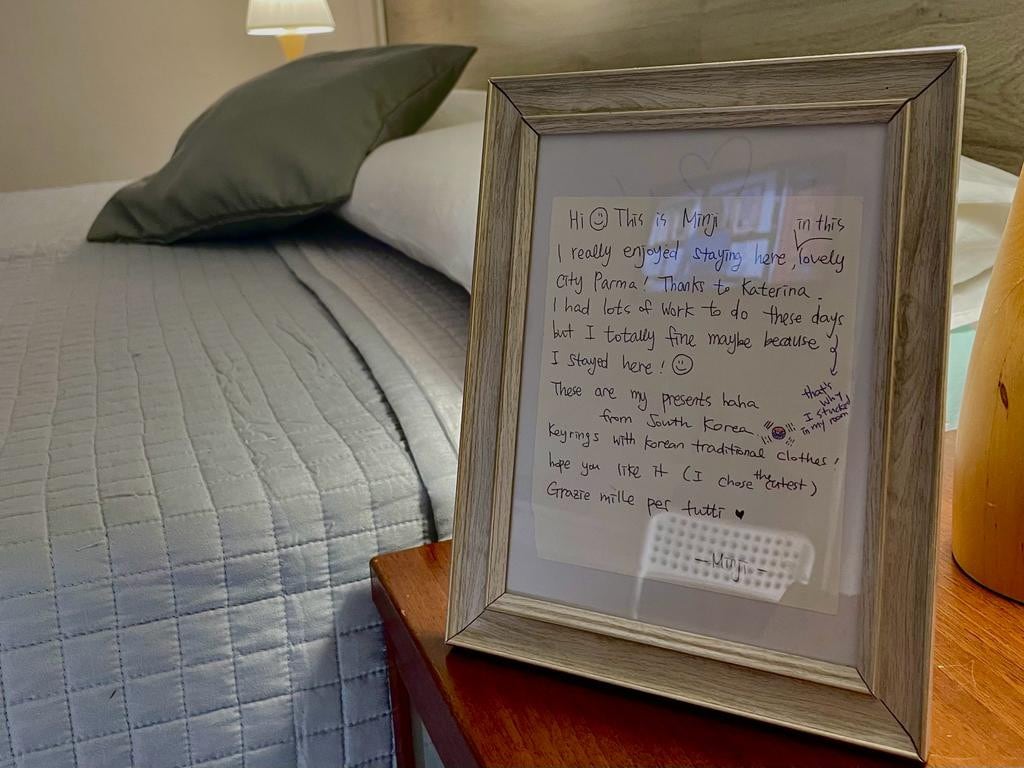 Hi ☺ This is Minji
I really enjoyed staying here, in this lovely
City Parma! Thanks to Katerina.
I had lots of work to do these days
but I totally fine maybe because
I stayed here! ☺
that's
why
I stucked
in my room
These are my presents haha
from South Korea
Keyrings with Korean traditional clothes,
hope you like it (I chose the cutest)
Grazie mille per tutti ♥
- Minji -